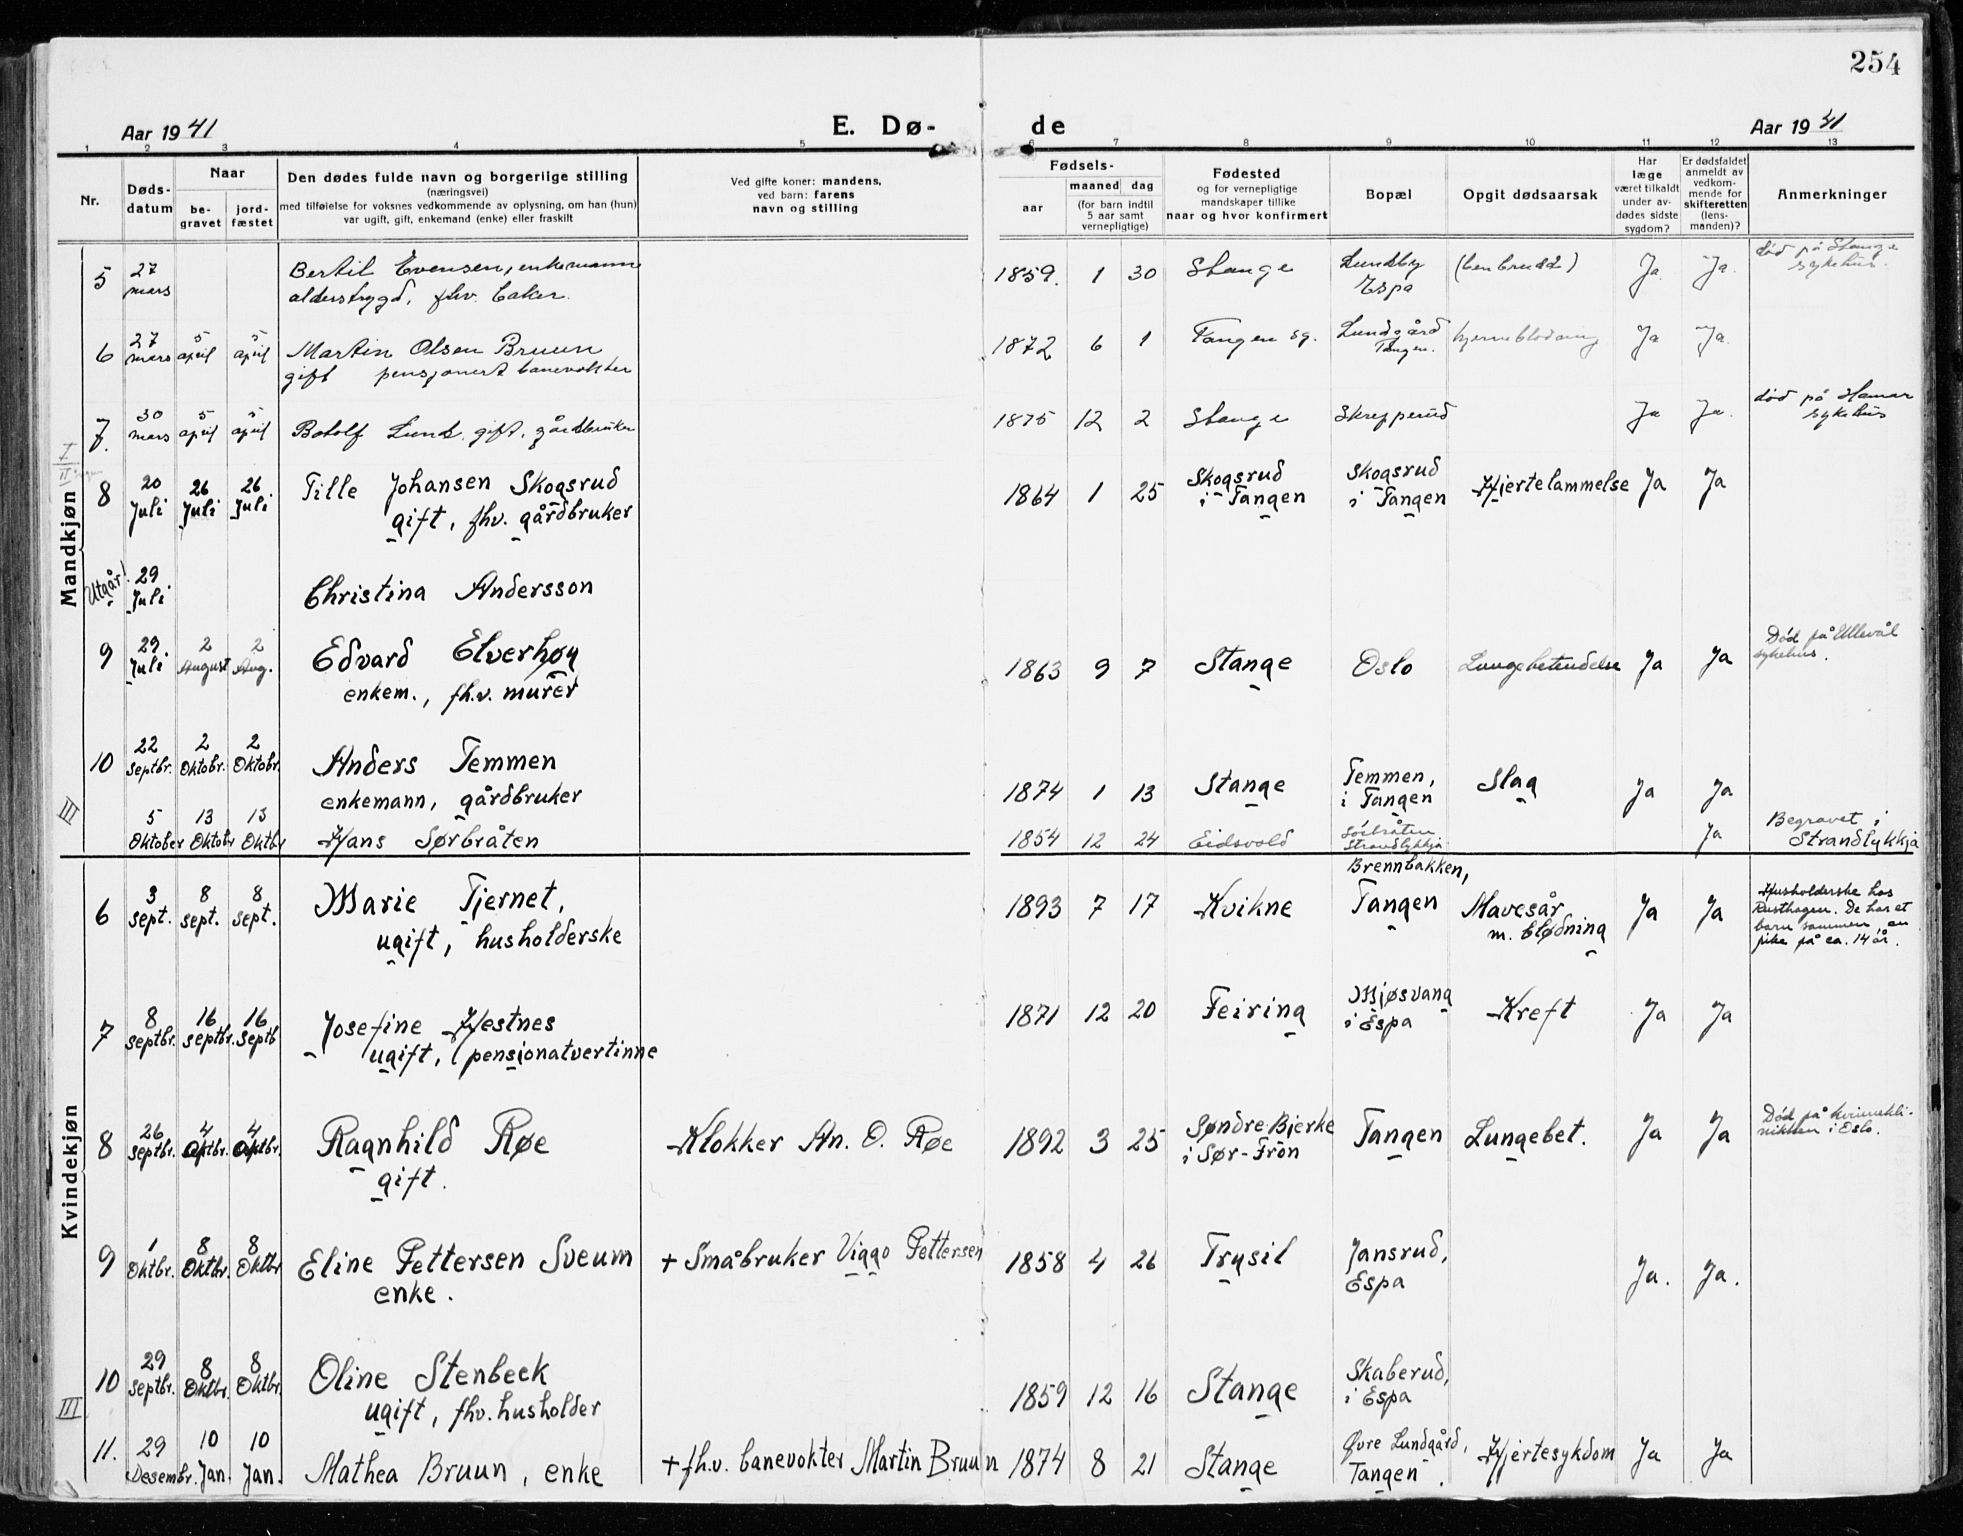 254
Aar 1941 E. Dø- de Aar 1941
1 2 3 4 5 6 7 8 9 10 11 12 13
Nr.
Døds-
datum
Naar
be-
gravet
jord-
fæstet
Den dødes fulde navn og borgerlige stilling
(næringsvei)
med tilføielse for voksnes vedkommende av oplysning, om han (hun)
var ugift, gift, enkemand (enke) eller fraskilt
Ved gifte koner: mandens,
ved barn: farens
navn og stilling
Fødsels-
aar
maaned dag
(for barn indtil
5 aar samt
vernepligtige)
Fødested
og for vernepligtige
mandskaper tillike
naar og hvor konfirmert
Bopæl
Opgit dødsaarsak
Har
læge
været tilkaldt
under av-
dødes sidste
sygdom?
Er dødsfaldet
anmeldt av
vedkom-
mende for
skifteretten
(lens-
manden)?
Anmerkninger
Mandkjøn
5 27 mars Bertil Evensen, enkemann 1859. 1 30 Stange Lundby (benbrudd) Ja Ja. død på Stange
alderstrygd, fhv. baker. Espa sykehus.
6 27 mars 5 april 5 april Martin Olsen Bruun 1872 6 1 Tangen sg. Lundgård hjerneblødning Ja Ja.
gift pensjonert banevokter Tangen.
7. 30 mars 5 april 5 april Botolf Lund. gift. gårdbruker 1875 12 2 Stange Skrepperud Ja Ja. død på Hamar
sykehus
8 20 Juli 26 Juli 26 Juli Tille Johansen Skogsrud 1864 1 25 Skogsrud Skogsrud Hjertelammelse Ja Ja
gift, fhv. gårdbruker i Tangen i Tangen
Utgår! 29 Juli Christina Andersson
9 29 Juli 2 August 2 Aug. Edvard Elverhøy 1863 9 7 Stange Oslo Lungebetendelse Ja Ja Død på Ullevål
enkem., fh.v. murer sykehus.
10 22 Septbr. 2 Oktobr. 2 Oktobr. Anders Temmen 1874 1 13 Stange Temmen, Slag Ja Ja
enkemann, gårdbruker i Tangen
III 5 Oktober 13 Oktobr 13 Oktbr Hans Sørbråten 1854 12 24 Eidsvold Sörbråten Ja Begravet i
Strandlykkja Strandlykkja
Kvindekjøn
6 3 sept. 8 sept. 8 sept. Marie Tjernet, 1893 7 17 Kvikne Brennbakken, Mavesår Ja Ja Husholderske hos
ugift, husholderske Tangen m. blødning Rusthagen. De har et
barn sammen, en
pike på ca. 14 år.
7 8 septbr. 16 septbr. 16 septb Josefine Hestnes 1871 12 20 Feiring Mjøsvang Kreft Ja Ja
ugift, pensjonatvertinne i Espa
8 26 septbr. 4 Oktbr. 4 Oktbr. Ragnhild Røe Klokker An. O. Røe 1892 3 25 Søndre Bjerke Tangen Lungebet. Ja Ja Død på kvinnekli-
gift. i Sør-Fron nikken i Oslo.
9 1 Oktbr. 8 Oktbr. 8 Oktbr Eline Pettersen Sveum + Småbruker Viggo Pettersen 1858 4 26 Trysil Jansrud, Ja. Ja.
enke. Espa
10 29 septbr. 8 Oktbr. 8 Oktbr. Oline Stenbeck 1859 12 16 Stange Skaberud,
III ugift, fhv. husholder i Espa
11. 29 Desembr. 10 Jan. 10 Jan. Mathea Bruun, enke + fh.v. banevokter Martin Bruun 1874 8 21 Stange Øvre Lundgård, Hjertesykdom Ja Ja
Tangen.